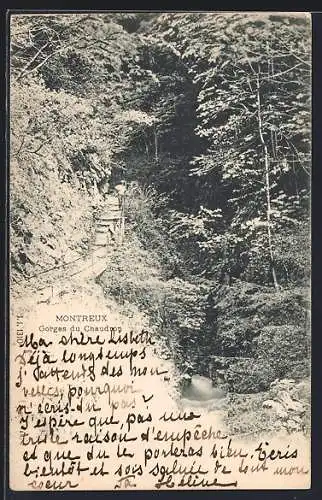 MONTREUX
Gorges du Chaudron
Ma chère Lisbeth
Déjà longtemps
j'attends des nou
velles, pourquoi
n'écris-tu pas?
J'espère que, pas une
triste raison d'empêche
et que du te porteras bien, Ecris
bientôt et sois saluée de tout mon
coeur ta Hélène